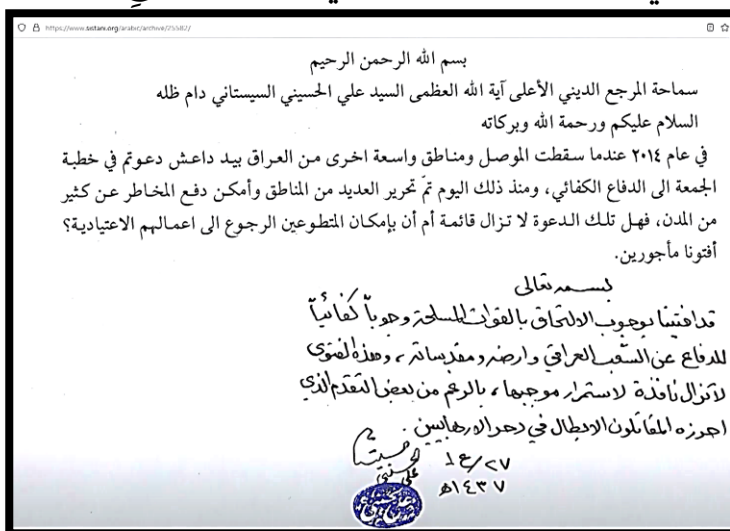 https://www.sistani.org/arabic/archive/25582/
بسم الله الرحمن الرحيم
سماحة المرجع الديني الأعلى آية الله العظمى السيد علي الحسيني السيستاني دام ظله
السلام عليكم ورحمة الله وبركاته
في عام ٢٠١٤ عندما سقطت الموصل ومناطق واسعة اخرى من العراق بيد داعش دعوتم في خطبة
الجمعة الى الدفاع الكفائي، ومنذ ذلك اليوم تمّ تحرير العديد من المناطق وأمكن دفع المخاطر عن كثير
من المدن، فهل تلك الدعوة لا تزال قائمة أم أن بإمكان المتطوعين الرجوع الى اعمالهم الاعتيادية؟
أفتونا مأجورين.
بسمه تعالى
قد افتينا بوجوب الالتحاق بالقوات المسلحة وجوباً كفائياً
للدفاع عن الشعب العراقي وارضه ومقدساته، وهذه الفتوى
لا تزال نافذة لاستمرار موجبها، بالرغم من بعض التقدم الذي
احرزه المقاتلون الابطال في دحر الارهابيين.
٢٧/ع١
١٤٣٧هـ